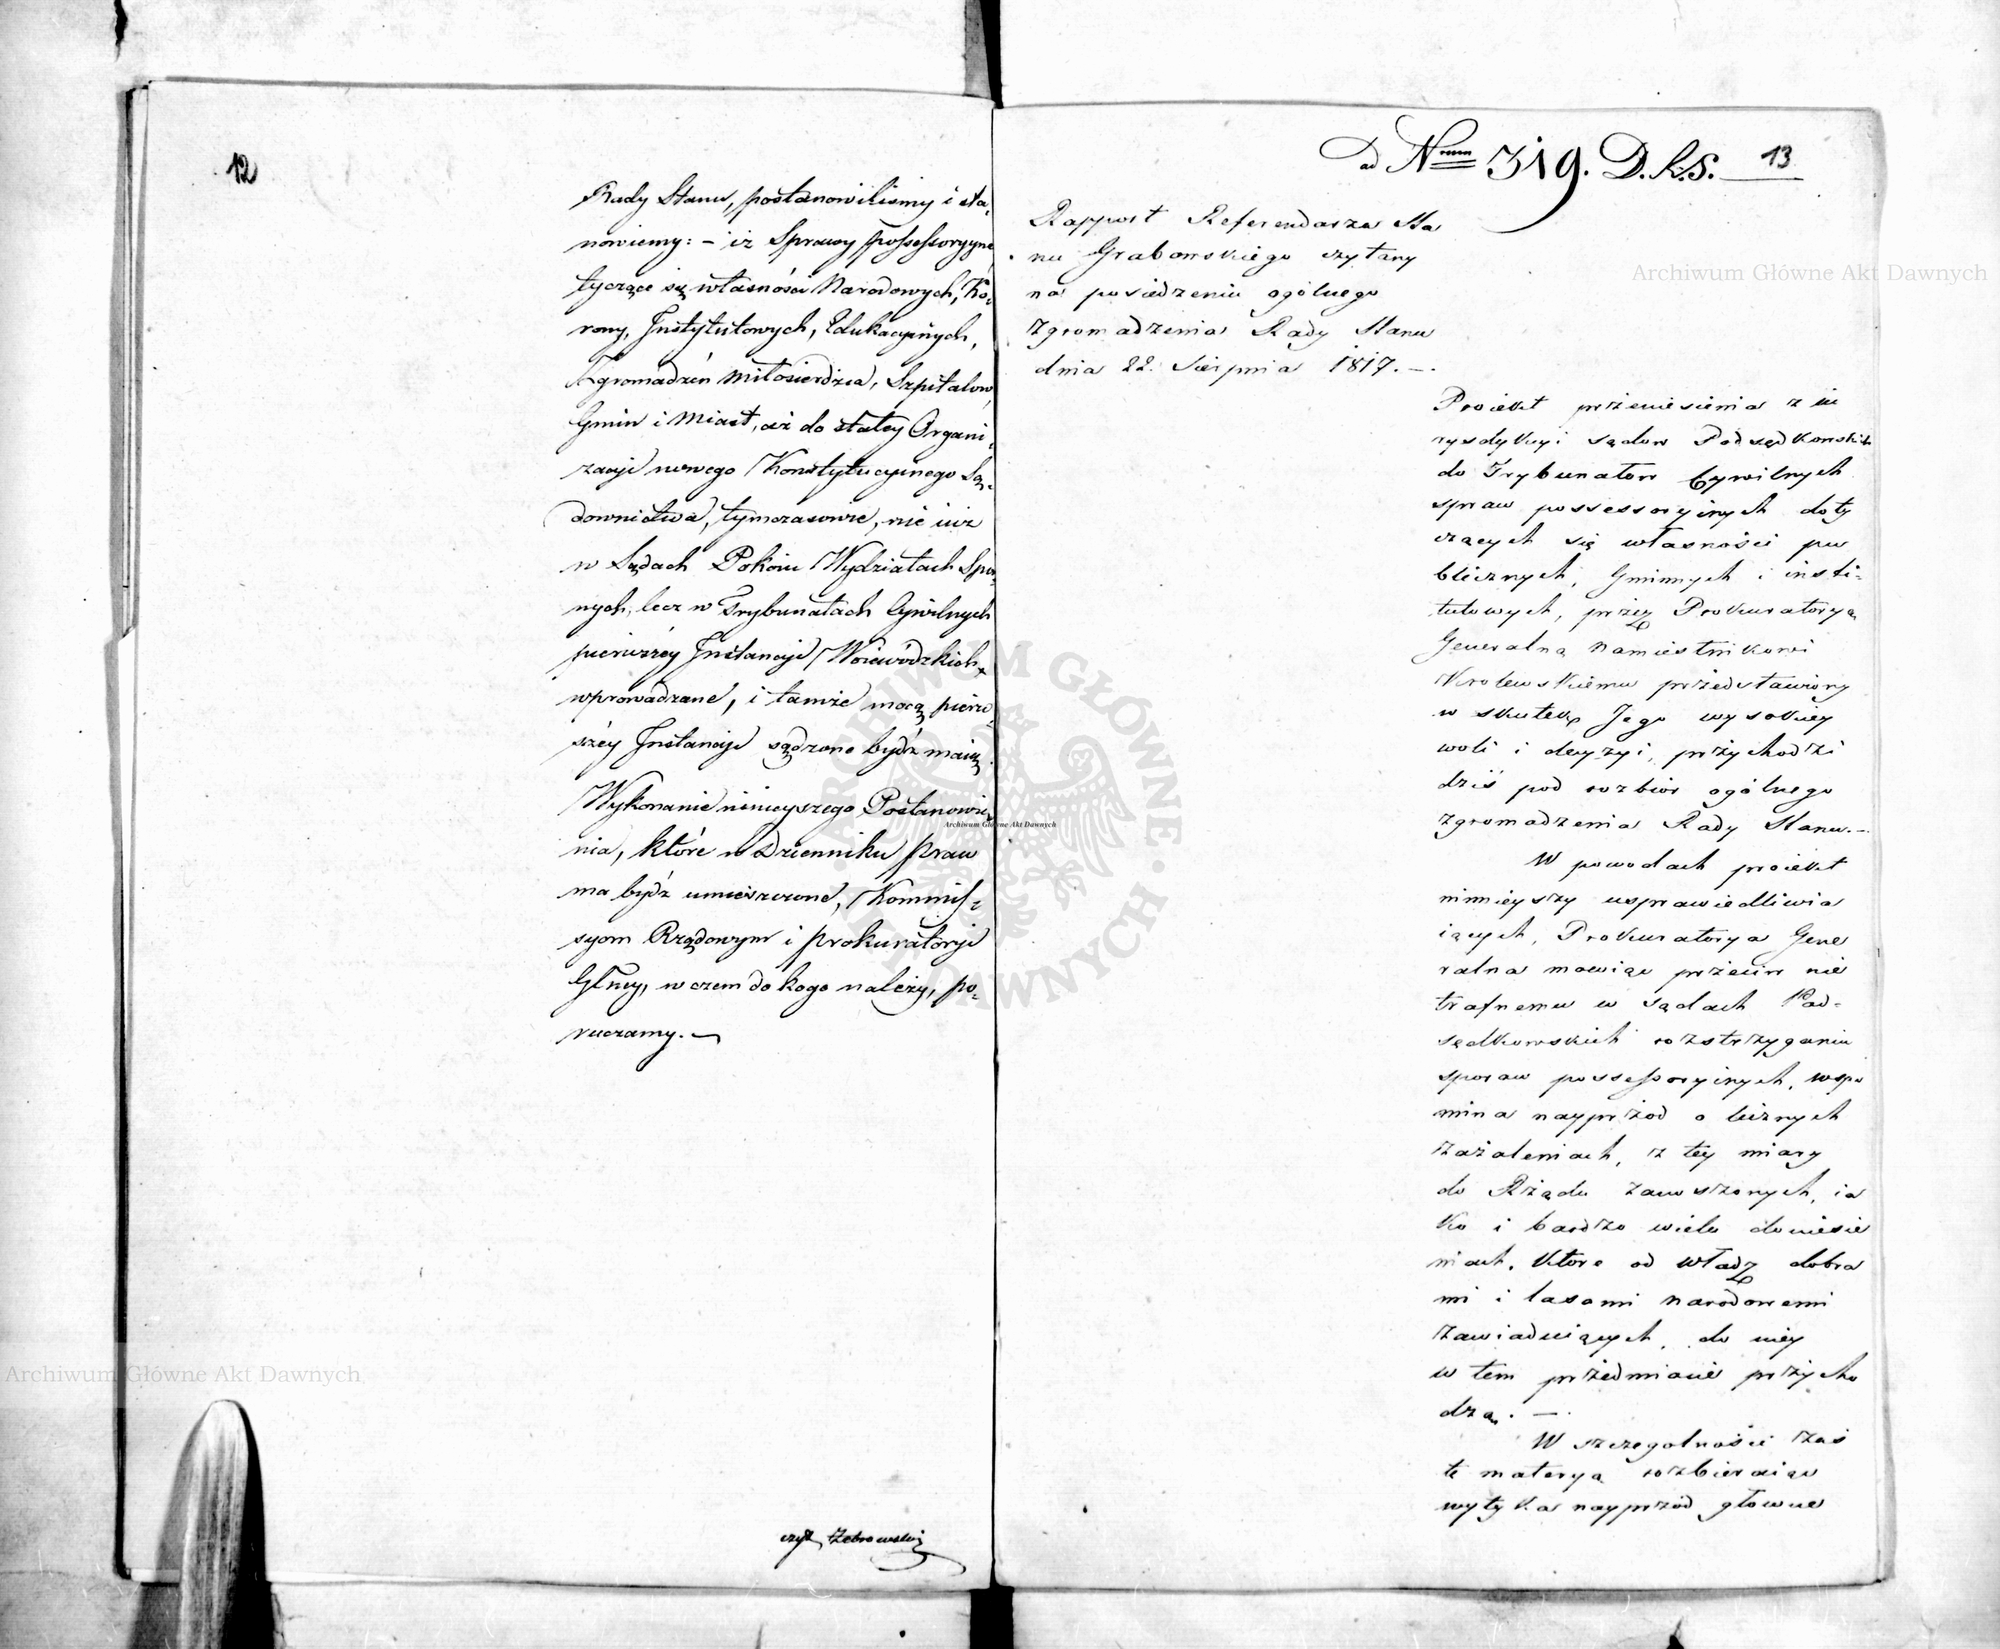 12
Rady Stanu, postanowiliśmy i sta-
nowiemy: – iż Sprawy possessoryyne
tyczące się własności Narodowych, Ko-
rony, Instytutowych, Edukacyinych,
Zgromadzeń Miłosierdzia, Szpitalow,
Gmin i Miast, aż do stałey Organi-
zacyi nowego Konstytucyinego Są-
downictwa, tymczasowie, nie iuż
w Sądach Pokoiu Wydziałach Spor-
nych, lecz w Trybunałach Cywilnych
pierwszey Instancyi Woiewódzkich
wprowadzane, i tamże mocą pierw-
szey Instancyi sądzone bydź maią.
Wykonanie ninieyszego Postanowie-
nia, które w Dzienniku praw
ma bydź umieszczone, Kommis-
syom Rządowym i Prokuratoryi
Głney, w czem do kogo należy, po-
ruczamy. —
czyt. Żebrowski
ad Num 319. D.K.S. 13
Rapport Referendarza Sta
nu Grabowskiego czytany
na posiedzeniu ogólnego
Zgromadzenia Rady Stanu
dnia 22. Sierpnia 1817. —.
Proiekt przeniesienia z iu
rysdykcyi sądow Podsędkowskich
do Trybunałow Cywilnych
spraw possessoryinych doty
czących się własności pu
blicznych, Gminnych i insti-
tutowych, przez Prokuratoryą
Generalną Namiestnikowi
Krolewskiemu przedstawiony
w skutek Jego wysokiey
woli i decyzyi, przychodzi
dziś pod rozbior ogólnego
zgromadzenia Rady Stanu. —
W powodach proiekt
ninieyszy usprawiedliwia
iących, Prokuratorya Gene
ralna mowiąc przeciw nie
trafnemu w sądach Pod-
sędkowskich rozstrzyganiu
sporow possessoryinych, wspo
mina nayprzod o licznych
zażaleniach, z tey miary
do Rządu zanoszonych, ia
ko i bardzo wielu doniesie
niach, które od władz dobra
mi i lasami narodowemi
zawiaduiących, do niey
w tem przedmiocie przycho
dzą. —.
W szczegolności zaś
tę materyą rozbieraiąc
wytyka nayprzod głowne
Archiwum Główne Akt Dawnych
Archiwum Główne Akt Dawnych
Archiwum Główne Akt Dawnych
ARCHIWUM GŁÓWNE AKT DAWNYCH